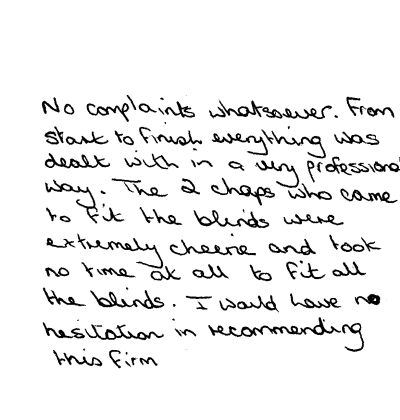 No complaints whatsoever. From
start to finish everything was
dealt with in a very professional
way. The 2 chaps who came
to fit the blinds were
extremely cheerie and took
no time at all to fit all
the blinds. I would have no
hesitation in recommending
this firm